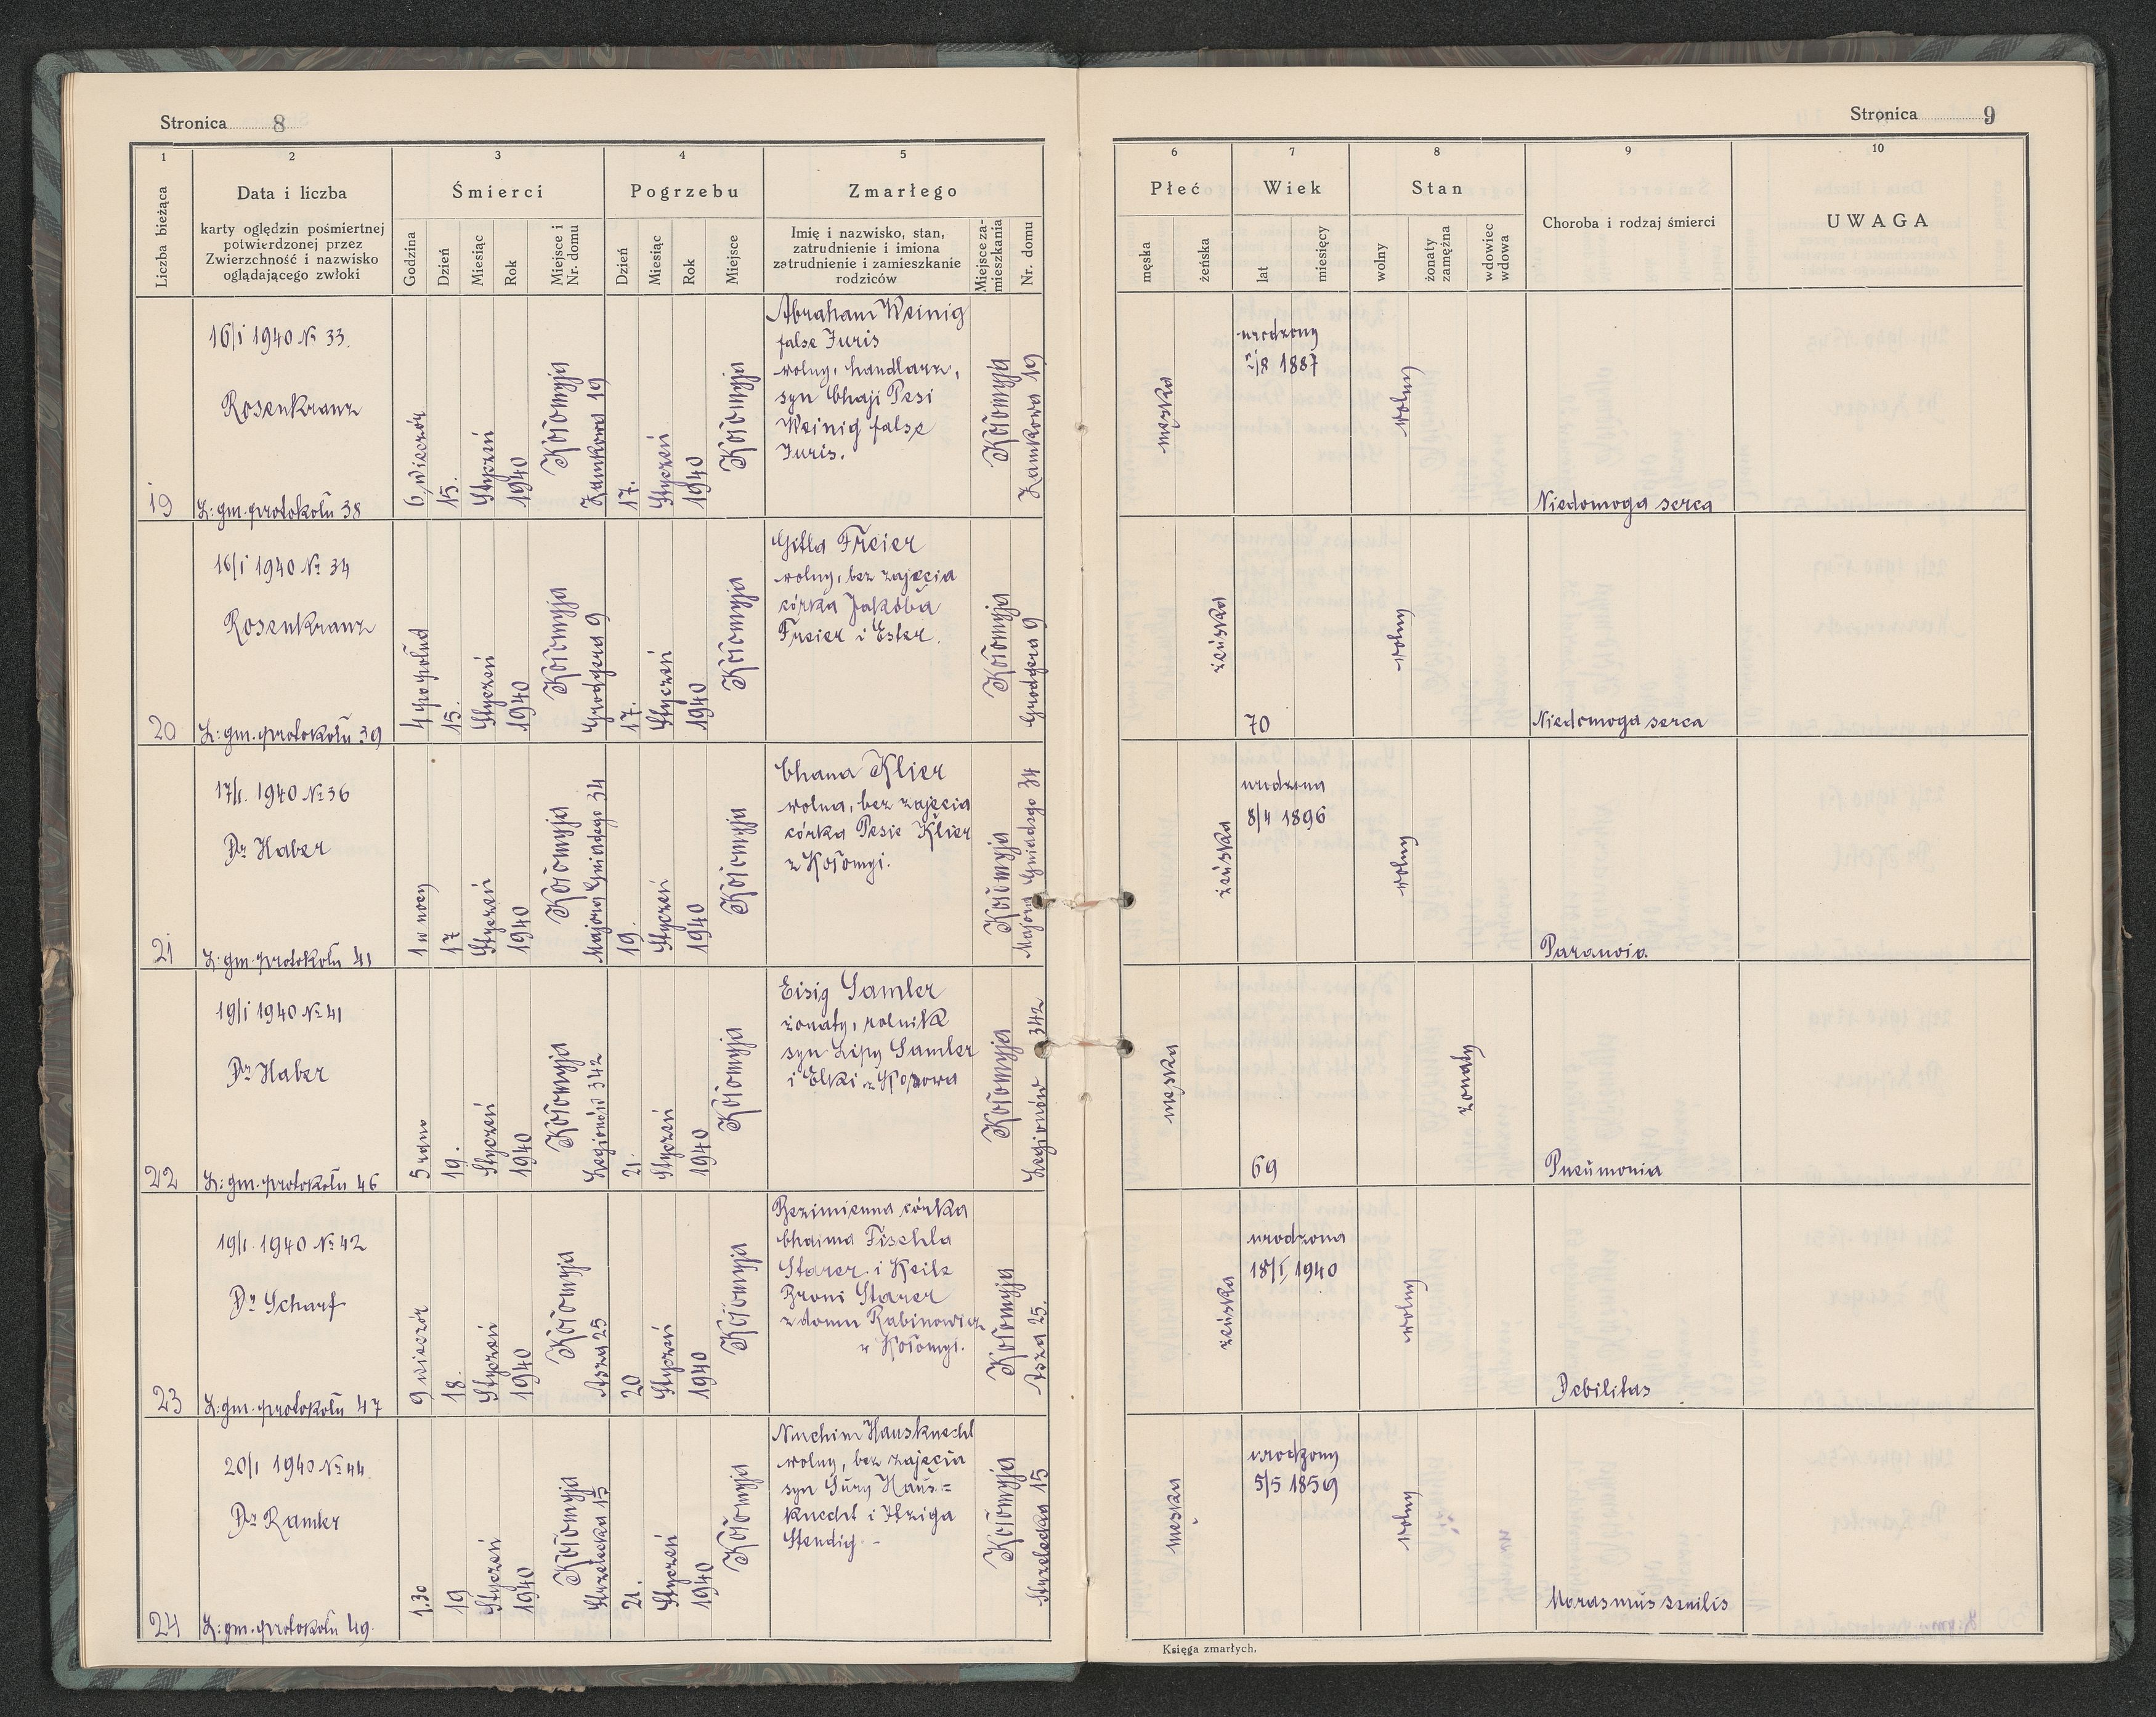 Stronica 8
1 2 3 4 5
Liczba bieżąca
Data i liczba
karty oględzin pośmiertnej
potwierdzonej przez
Zwierzchność i nazwisko
oglądającego zwłoki
Śmierci
Godzina
Dzień
Miesiąc
Rok
Miejsce i
Nr. domu
Pogrzebu
Dzień
Miesiąc
Rok
Miejsce
Zmarłego
Imię i nazwisko, stan,
zatrudnienie i imiona
zatrudnienie i zamieszkanie
rodziców
Miejsce za-
mieszkania
Nr. domu
19
16/I 1940 № 33.
Rosenkranz
L: gm. protokołu 38
6 wieczór
15.
Styczeń
1940
Kołomyja
Zamkowa 19
17.
Styczeń
1940
Kołomyja
Abraham Weinig
false Juris
wolny, handlarz,
syn Chaji Pesi
Weinig false
Juris.
Kołomyja
Zamkowa 19
20
16/I 1940 № 34
Rosenkranz
L: gm. protokołu 39
4 po połud
15.
Styczeń
1940
Kołomyja
Grodgera 9
17.
Styczeń
1940
Kołomyja
Gitla Freier
wolny, bez zajęcia
córka Jakóba
Freier i Ester.
Kołomyja
Grodgera 9
21
17/I. 1940 № 36
Dr Haber
L: gm. protokołu 41
1 w nocy
17
Styczeń
1940
Kołomyja
Majora Gniadego 34
19.
Styczeń
1940
Kołomyja
Chana Klier
wolna, bez zajęcia
córka Pesie Klier
z Kołomyi.
Kołomyja
Majora Gniadego 34
22
19/I 1940 № 41
Dr Haber
L: gm. protokołu 46
5 rano
19.
Styczeń
1940
Kołomyja
Legionów 342
21.
Styczeń
1940
Kołomyja
Eisig Samler
żonaty, rolnik
syn Lipy Samler
i Elki z
Kołomyja
Legionów 342
23
19/I. 1940 № 42
Dr Scharf
L: gm. protokołu 47
9 wieczór
18.
Styczeń
1940
Kołomyja
Asza 25
20
Styczeń
1940
Kołomyja
Bezimienna córka
Chaima Fischla
Starer i Keile
Broni Starer
z domu Rabinowicz
z Kołomyi.
Kołomyja
Asza 25.
24
20/I 1940 № 44
Dr Ramler
L: gm. protokołu 49.
1.30
19
Styczeń
1940
Kołomyja
Strzelecka 15
21.
Styczeń
1940
Kołomyja
Nuchim Hausknecht
wolny, bez zajęcia
syn Sury Haus=
knecht i Itziga
Stendig. -
Kołomyja
Strzelecka 15
Stronica 9
6 7 8 9 10
Płeć
męska
żeńska
Wiek
lat
miesięcy
Stan
wolny
żonaty
zamężna
wdowiec
wdowa
Choroba i rodzaj śmierci
UWAGA
męska
urodzony
2/8 1887
wolny
Niedomoga serca
żeńska
70
wolny
Niedomoga serca
żeńska
urodzona
8/4 1896
wolny
Paranoia
męska
69
żonaty
Pneumonia
żeńska
urodzona
18/I 1940
wolny
Debilitas
męska
urodzony
5/5 1859
wolny
Marasmus senilis
Księga zmarłych.